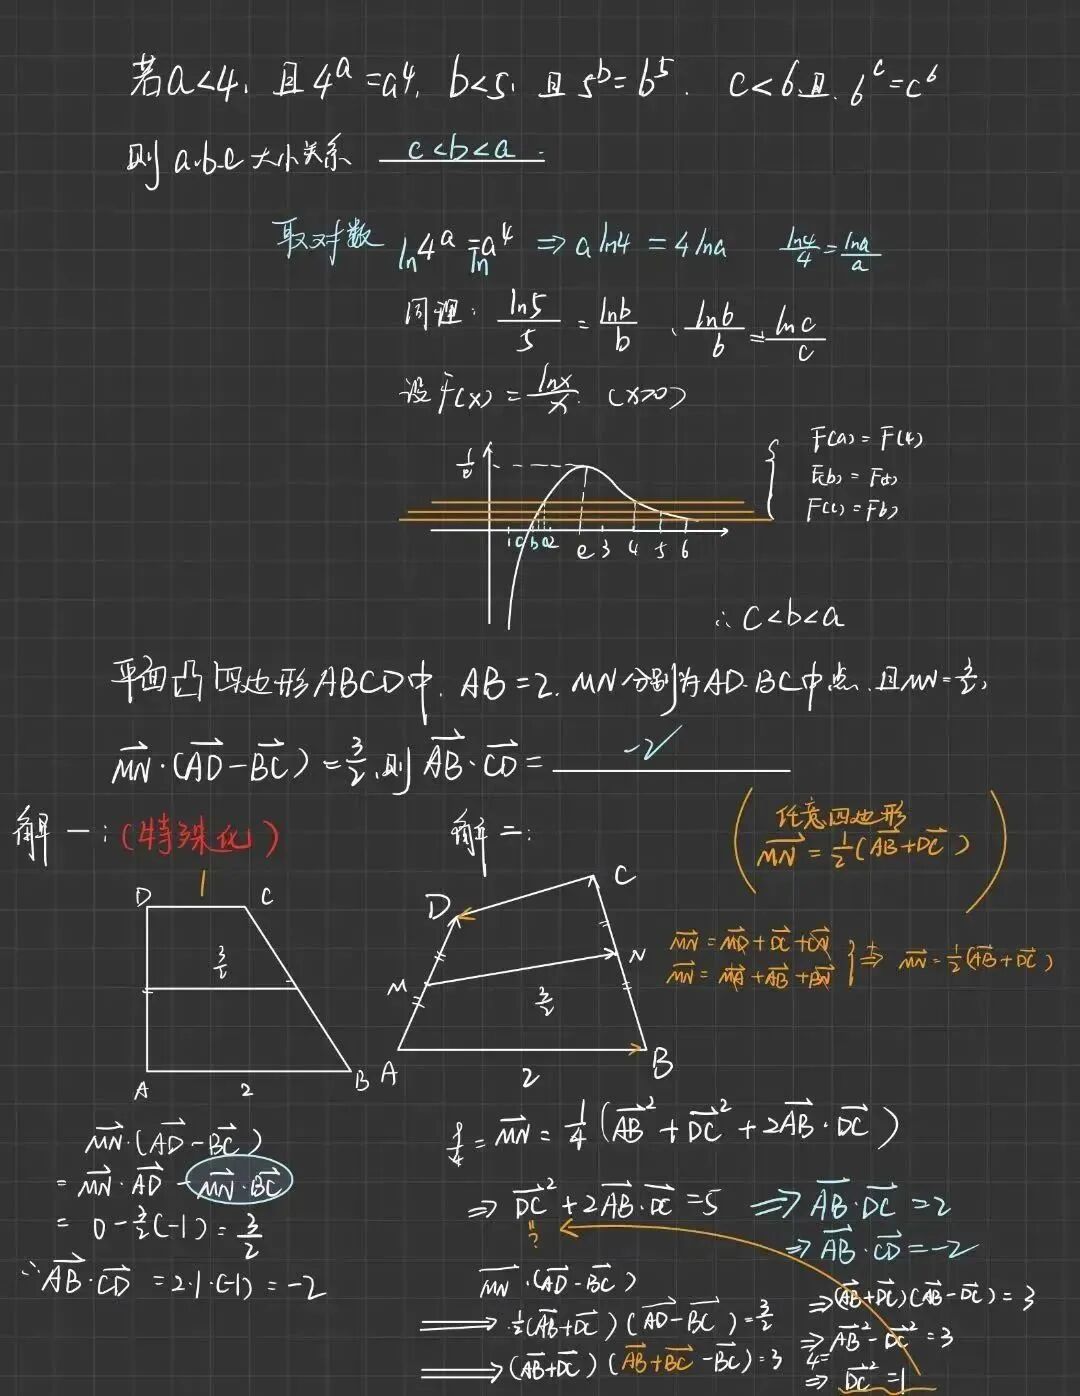 若a<4, 且4^a=a^4, b<5, 且5^b=b^5. c<6且. 6^c=c^6
则a.b.c大小关系 c<b<a.
取对数 ln4^a=lna^4 ⇒ aln4=4lna ln4/4=lna/a
同理: ln5/5=lnb/b、ln6/6=lnc/c
设F(x)=lnx/x. (x>0)
F(a)=F(4)
F(b)=F(5)
F(c)=F(6)
1/e
1 c b a 2 e 3 4 5 6
∴ c<b<a
平面凸四边形ABCD中. AB=2. MN分别为AD.BC中点.且MN=3/2,
MN·(AD-BC)=3/2,则AB·CD= -2
解一:(特殊化)
1
D C
3/2
A 2 B
MN·(AD-BC)
=MN·AD-MN·BC
=0-3/2(-1)=3/2
∴AB·CD=2·1·(-1)=-2
解二:
C
D
M N
3/2
A 2 B
(任意四边形
MN=1/2(AB+DC))
MN=MD+DC+CN
MN=MA+AB+BN }⇒ MN=1/2(AB+DC)
9/4=MN=1/4(AB²+DC²+2AB·DC)
⇒DC²+2AB·DC=5 ⇒AB·DC=2
?
⇒AB·CD=-2
MN·(AD-BC)
⇒1/2(AB+DC)(AD-BC)=3/2
⇒(AB+DC)(AB+BC-BC)=3
⇒(AB+DC)(AB-DC)=3
⇒AB²-DC²=3
4
⇒DC²=1